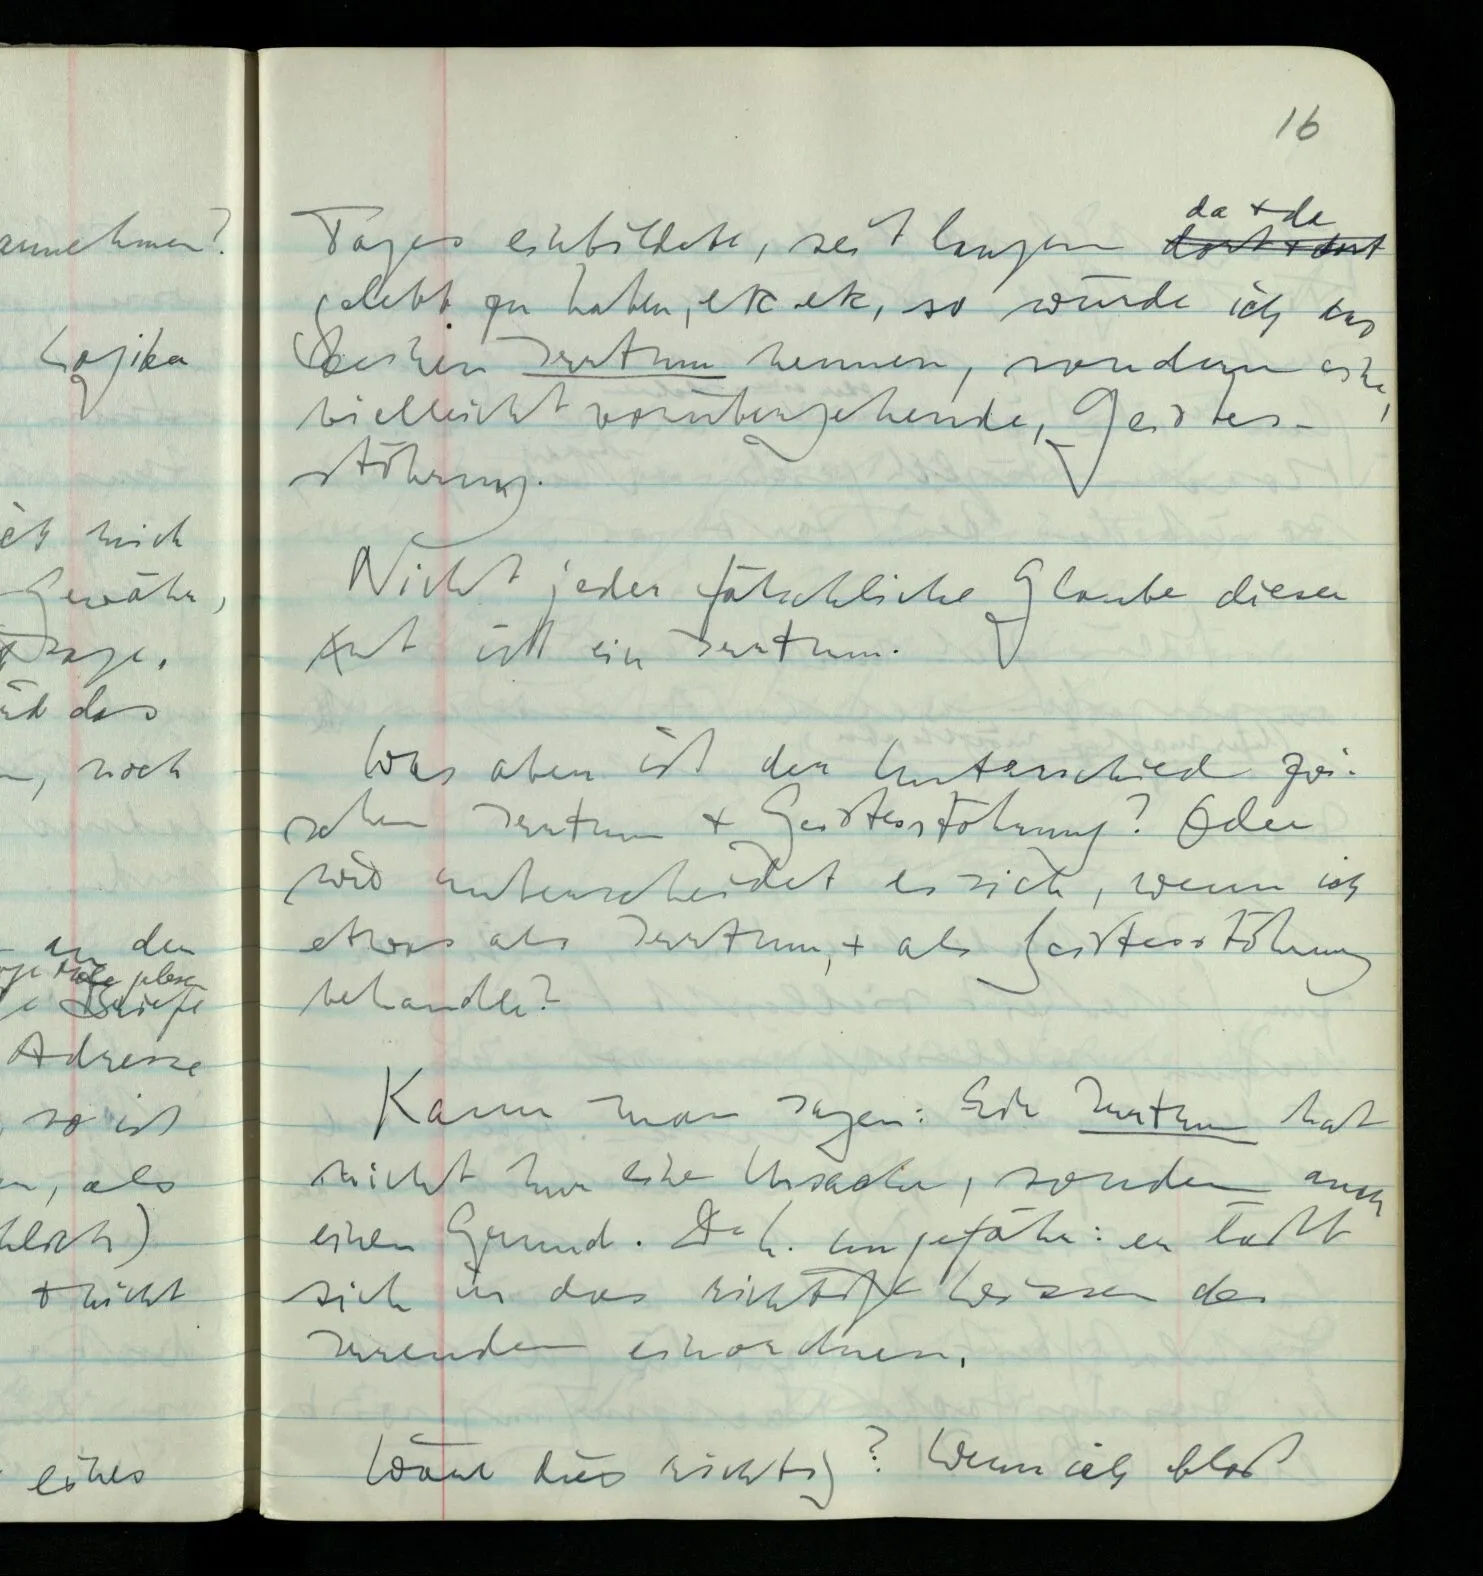 annehmen?
Logika
ich mich
Gewähr,
Frage.
das
, noch
an den
gelesen
Briefe
Adresse
, so ist
, als
+ nicht
eines
16
da + da
Tages einbildete, seit langem dort + dort
gelebt zu haben, etc etc, so würde ich das
keinen Irrtum nennen, sondern eine,
vielleicht vorübergehende, Geistes-
stöhrung.
Nicht jeder fälschliche Glaube dieser
Art ist ein Irrtum.
Was aber ist der Unterschied zwi-
schen Irrtum + Geistesstöhrung? Oder
wie unterscheidet es sich, wenn ich
etwas als Irrtum, + als Geistesstöhrung
behandle?
Kann man sagen: Ein Irrtum hat
nicht nur eine Ursache, sondern auch
einen Grund. D. h. ungefähr: er läßt
sich in das richtige Wissen des
Irrenden einordnen.
Wäre dies richtig? Wenn ich bloß